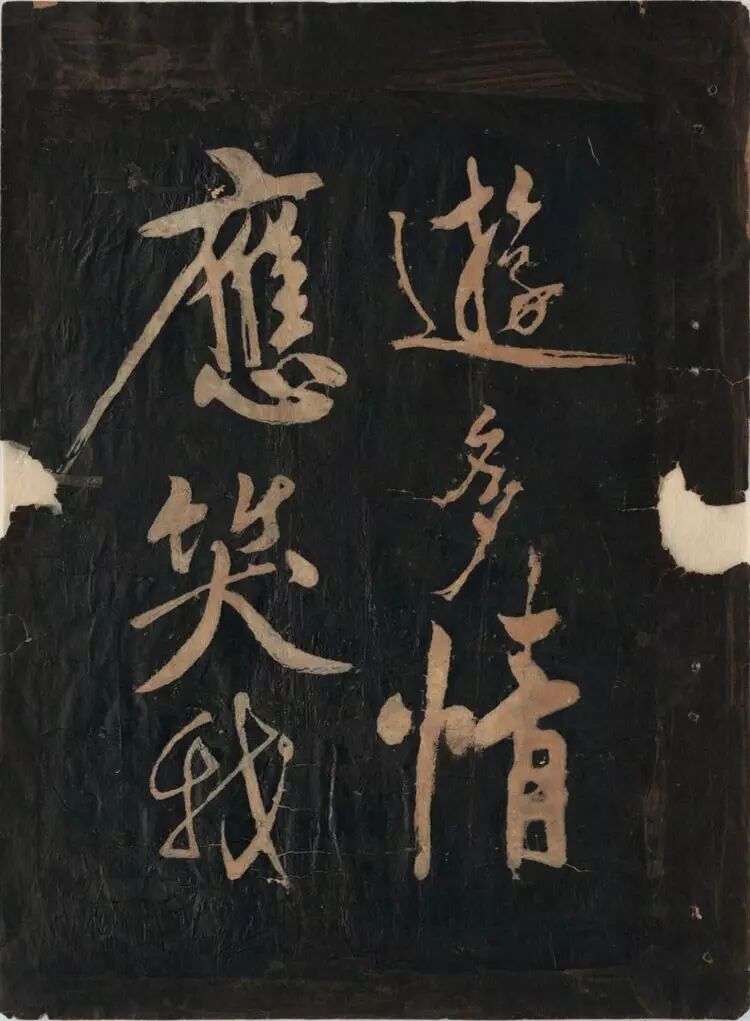 遊多情
應笑我